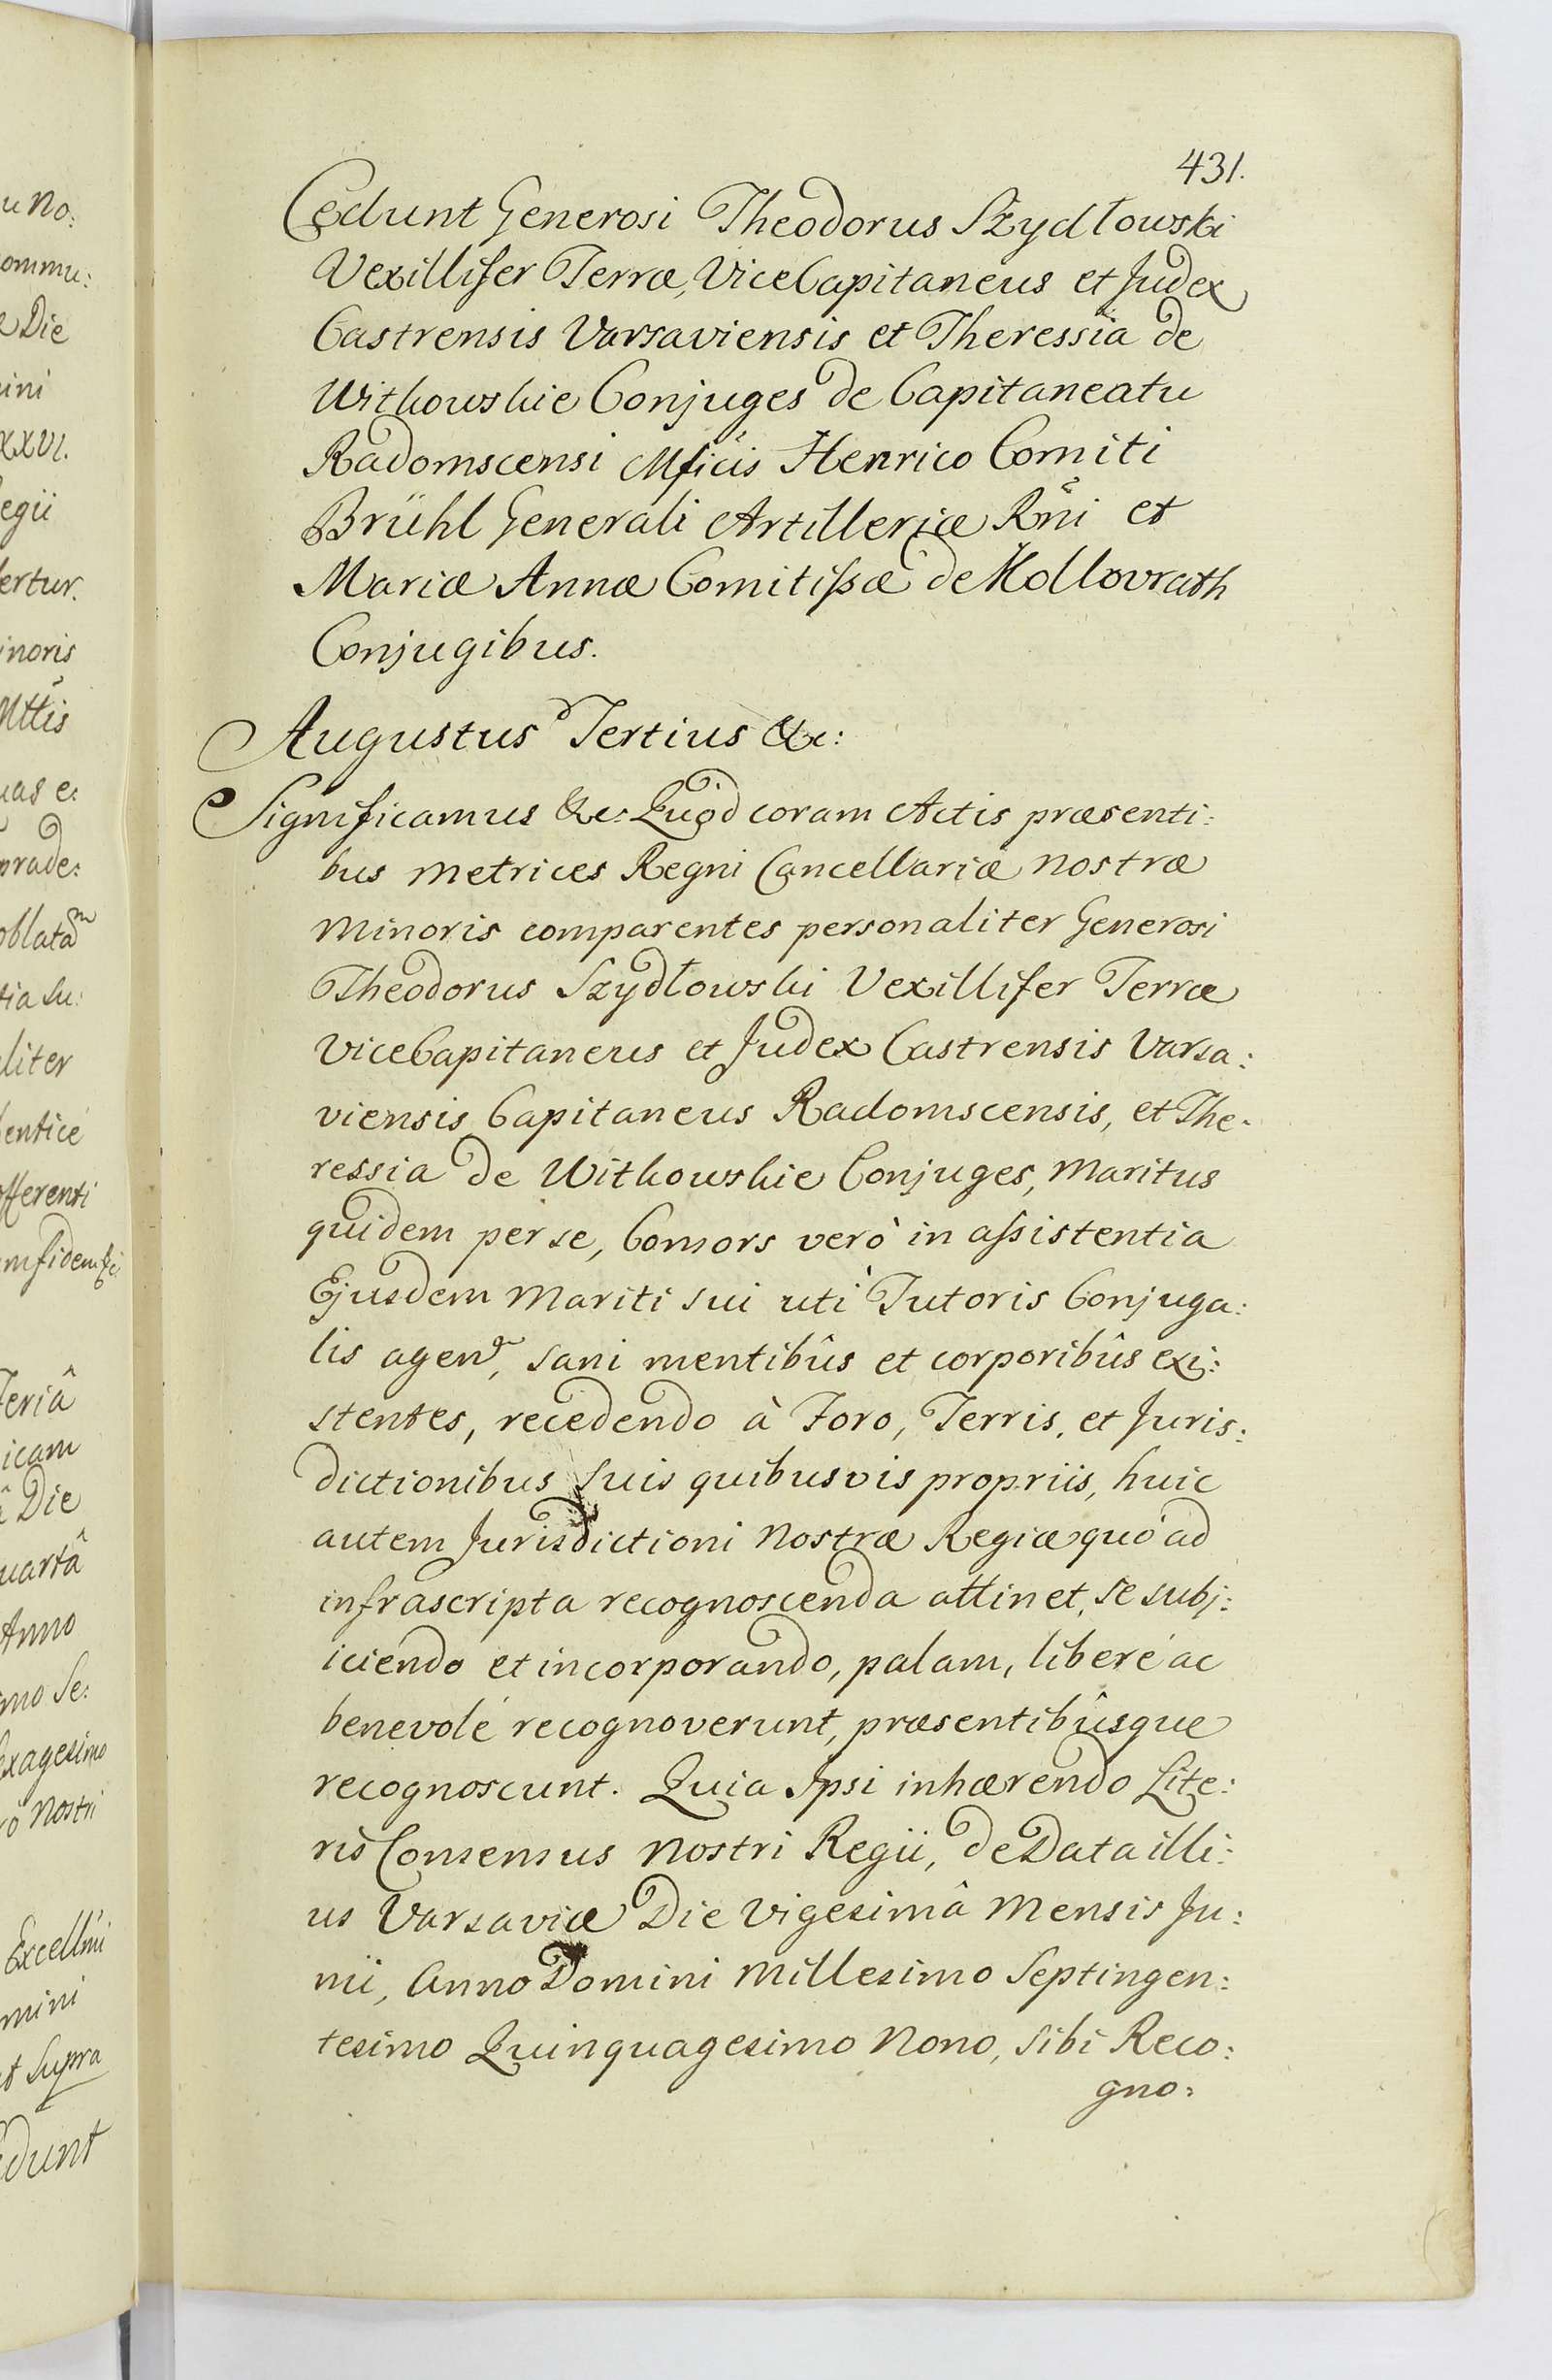 431.
Cedunt Generosi Theodorus Szydłowski
Vexillifer Terræ, ViceCapitaneus et Judex
Castrensis Varsaviensis et Theressia de
Witkowskie Conjuges de Capitaneatu
Radomscensi Mficis Henrico Comiti
Brühl Generali Artilleriæ Rñi et
Mariæ Annæ Comitissæ de Kollovrath
Conjugibus.
Augustus Tertius &c:
Significamus &c: Quòd coram Actis præsenti:
bus metrices Regni Cancellariæ nostræ
minoris comparentes personaliter Generosi
Theodorus Szydłowski Vexillifer Terræ
ViceCapitaneus et Judex Castrensis Varsa:
viensis Capitaneus Radomscensis, et The:
ressia de Witkowskie Conjuges, maritus
quidem per se, Consors verò in assistentia
Ejusdem mariti sui utì Tutoris Conjuga:
lis agen, sani mentibûs et corporibûs exi:
stentes, recedendo à Foro, Terris, et Juris:
dictionibus suis quibusvis propriis, huic
autem Jurisdictioni nostræ Regiæ quò ad
infrascripta recognoscenda attinet, se subj:
iciendo et incorporando, palam, liberé ac
benevolé recognoverunt, præsentibûsque
recognoscunt. Quia Ipsi inhærendo Lite:
ris Consensus nostri Regii, de Data illi:
us Varsaviæ Die vigesimâ mensis Ju:
nii, Anno Domini millesimo Septingen:
tesimo Quinquagesimo nono, sibi Reco:
gno:
u no:
ommu:
Die
ini
XXVI.
egii
ertur.
inoris
Mttis
uas e:
prade:
oblatam
tia su:
liter
entice
offerenti
Teriâ
icam
Die
uartâ
Anno
mo Se:
exagesimo
nostri
Excellmi
mini
ut supra
edunt